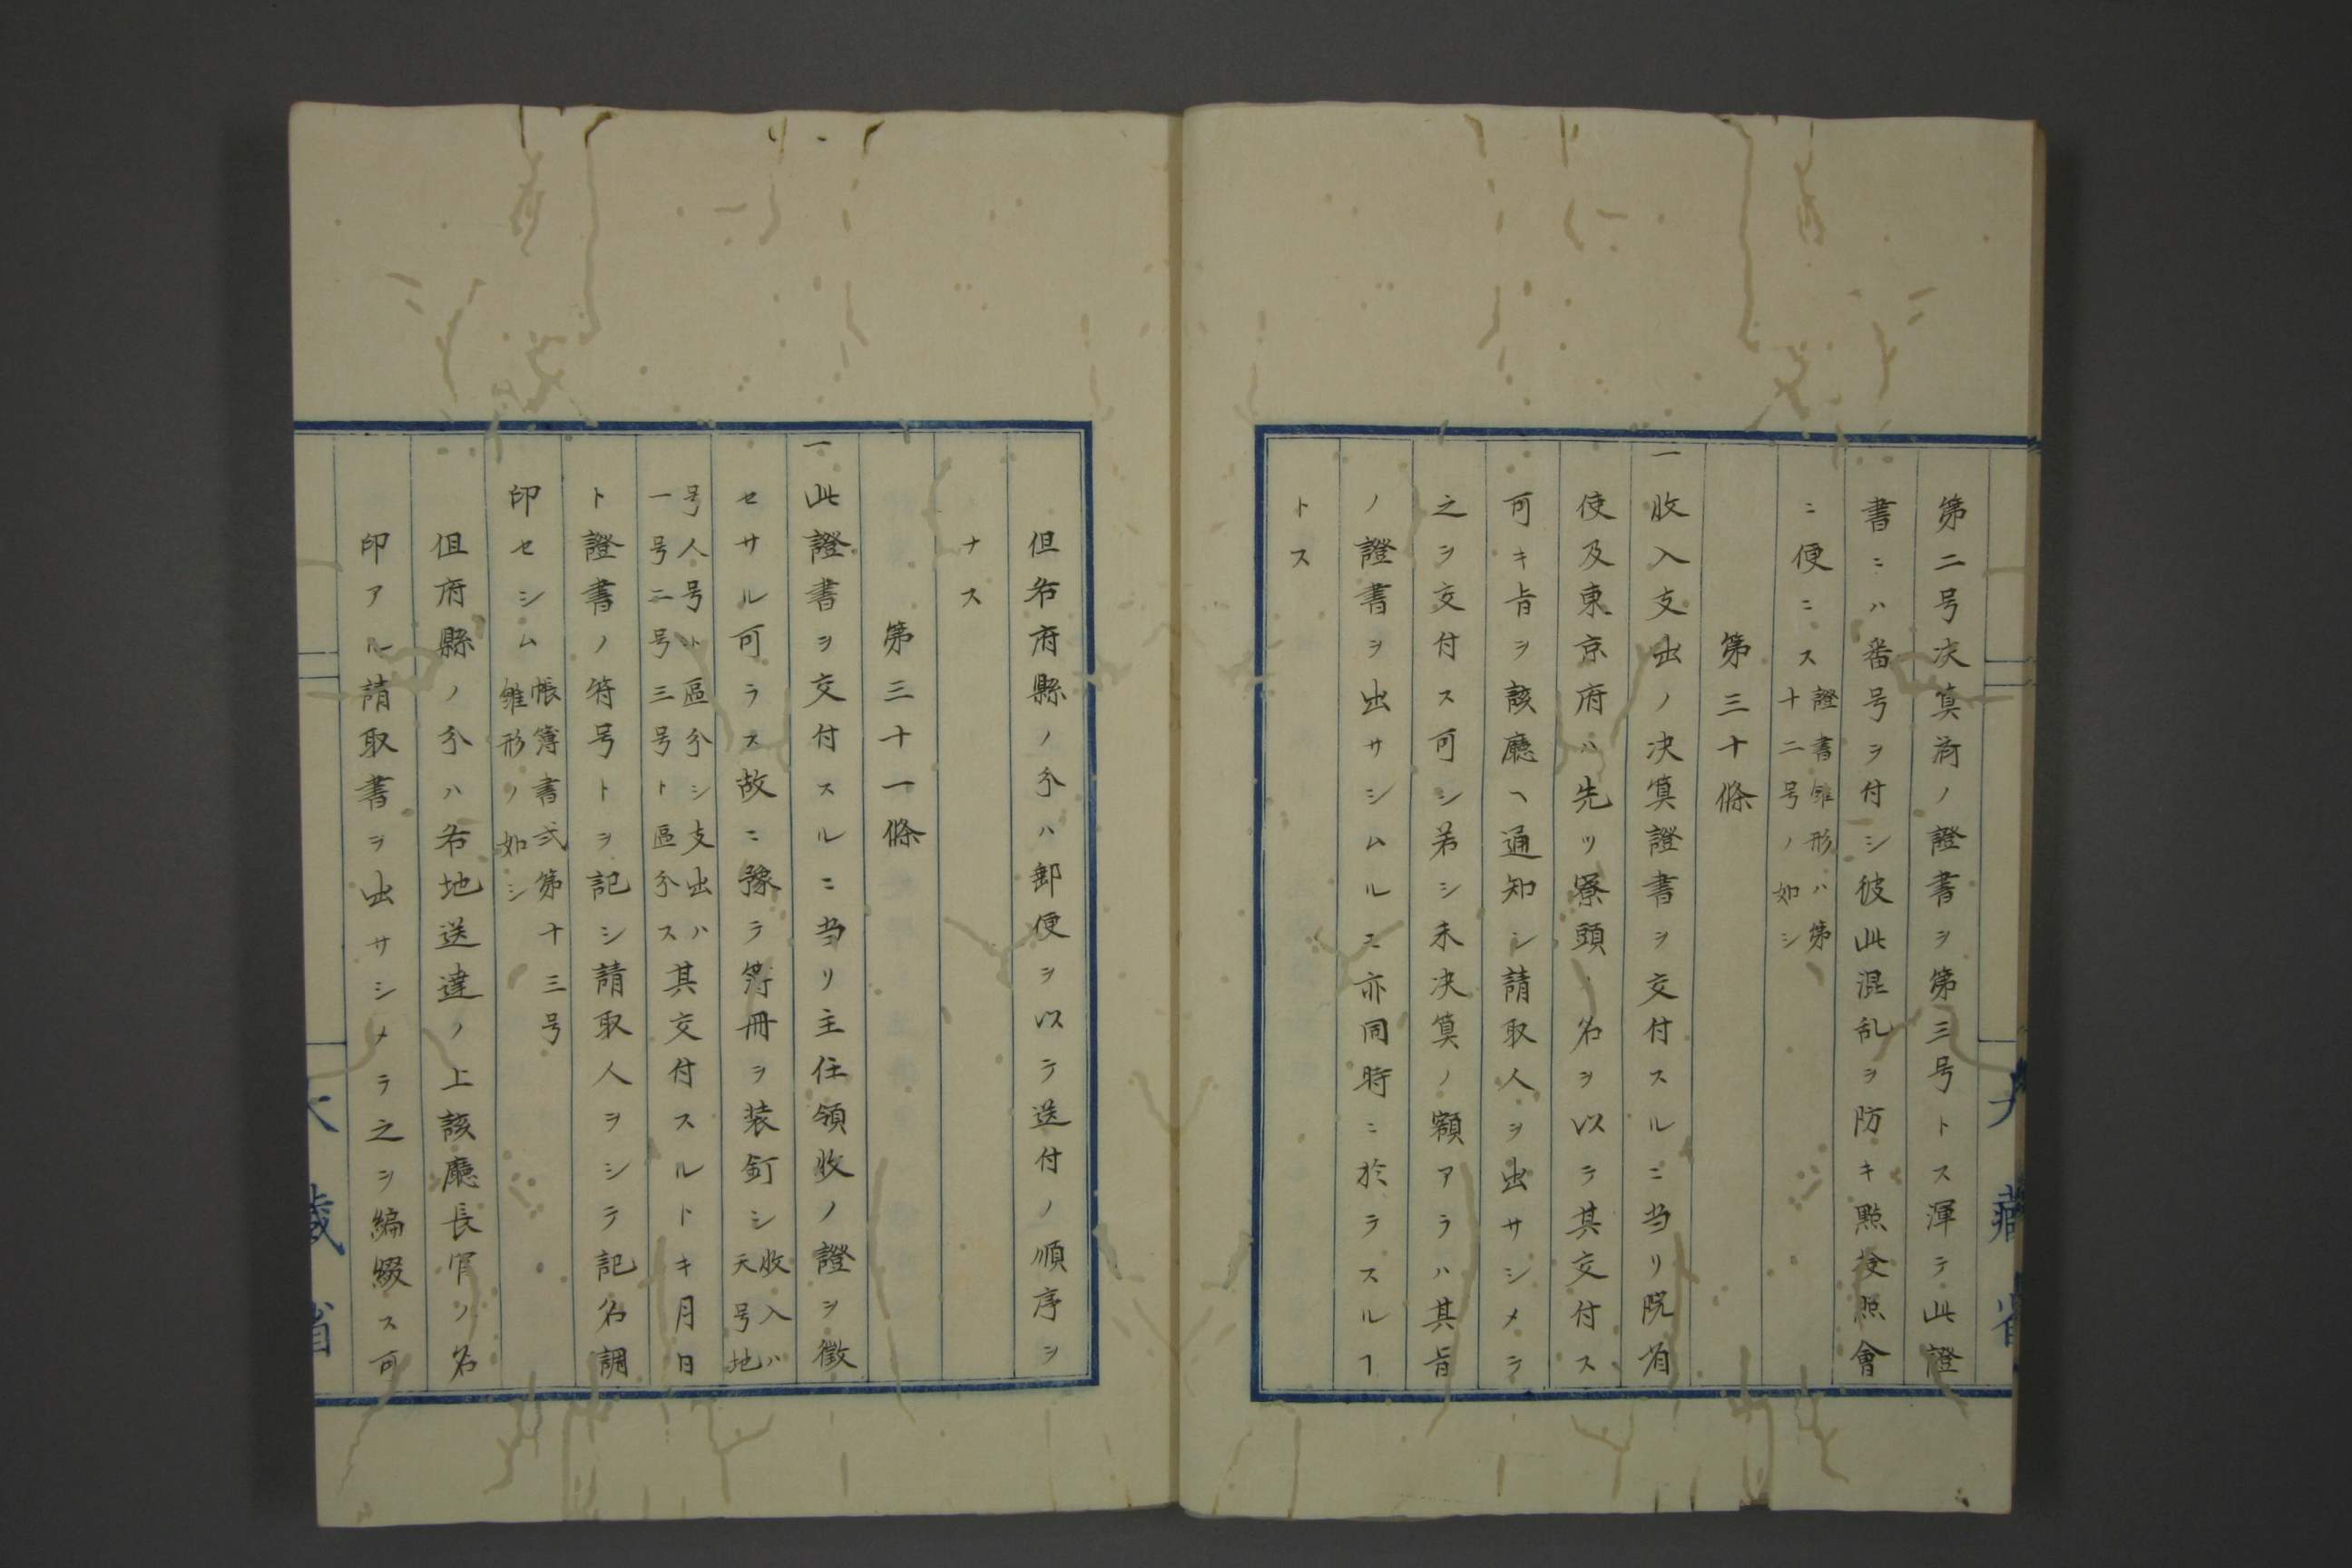 第二号决算済ノ證書ヲ第三号トス渾テ此證
書ニハ番号ヲ付シ彼此混乱ヲ防キ點撿照會
ニ便ニス
證書雛形ハ第
十二号ノ如シ
第三十條
一收入支出ノ决算證書ヲ交付スルニ当リ院省
使及東京府ハ先ツ寮頭ノ名ヲ以テ其交付ス
可キ旨ヲ該廳ヘ通知シ請取人ヲ出サシメテ
之ヲ交付ス可シ若シ未决算ノ額アラハ其旨
ノ證書ヲ出サシムルニ亦同時ニ於テスルヿ
トス
大藏省
但各府縣ノ分ハ郵便ヲ以テ送付ノ順序ヲ
ナス
第三十一條
一此證書ヲ交付スルニ当リ主任領收ノ證ヲ徴
セサル可ラス故ニ豫テ簿冊ヲ装釘シ
收入ハ
天号地
号人号ト區分シ支出ハ
一号二号三号ト區分ス
其交付スルトキ月日
ト證書ノ符号トヲ記シ請取人ヲシテ記名調
印セシム
帳簿書式第十三号
雛形ノ如シ
但府縣ノ分ハ各地送達ノ上該廳長官ノ名
印アル請取書ヲ出サシメテ之ヲ編綴ス可
大藏省